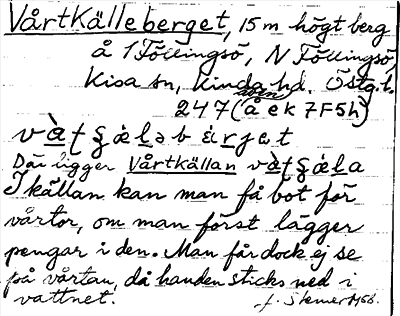 Vårtkälleberget, 15 m högt berg
å 1 Föllingsö, N Föllingsö,
Kisa sn, Kinda hd. Östg.l.
247 (även å ek 7F5h)
Där ligger Vårtkällan
I källan kan man få bot för
vårtor, om man först lägger
pengar i den. Man får dock ej se
på vårtan, då handen sticks ned i
vattnet.